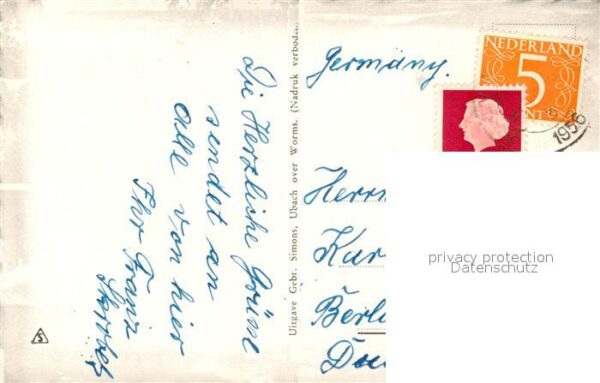 Die Herzliche Grüße
sendet an
alle von hier
Ihr Franz
Uitgave Gebr. Simons, Ubach over Worms. (Nadruk verboden.
Germany.
NEDERLAND
5
CENT
1956
Herrn
Kar
Berli
privacy protection
Datenschutz
S